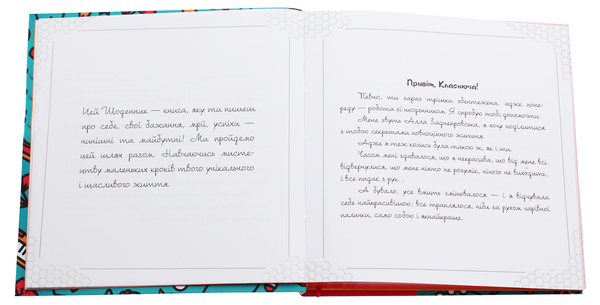 Цей Щоденник — книга, яку ти пишеш
про себе, свої бажання, мрії, успіхи —
нинішні та майбутні! Ми пройдемо
цей шлях разом. Навчаючись мисте-
цтву маленьких кроків твого унікального
і щасливого життя.
Привіт, Класнюча!
Певно, ти зараз трішки збентежена, адже попе-
реду — робота зі щоденником. Я спробую тобі допомогти.
Мене звуть Алла Заднепровська, я хочу поділитися
з тобою секретами повноцінного життя.
Адже я теж колись була такою ж, як і ти.
Часом мені здавалося, що я некрасива, що від мене всі
відвернулися, що мене ніхто не розуміє, нічого не виходить,
і все падає з рук...
А бувало, усе вмить змінювалося — і я відчувала
себе найкрасивішою, все траплялося, ніби за рухом чарівної
палички, само собою і якнайкраще.